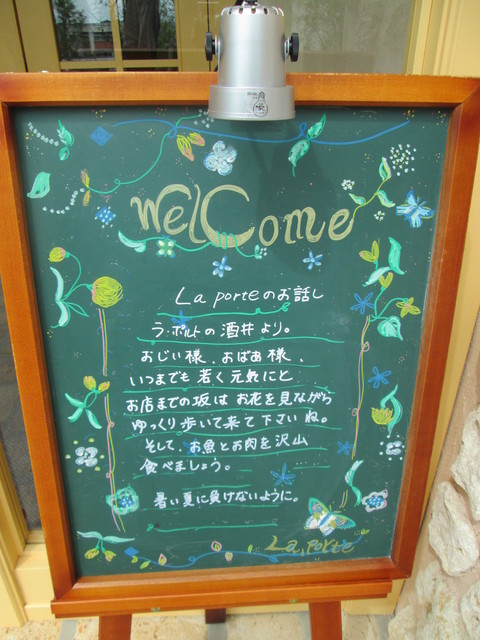 WelCome
La porteのお話し
ラ・ポルトの酒井より。
おじい様、おばあ様、
いつまでも若く元気にと
お店までの坂はお花を見ながら
ゆっくり歩いて来て下さいね。
そして、お魚とお肉を沢山
食べましょう。
暑い夏に負けないように。
La porte